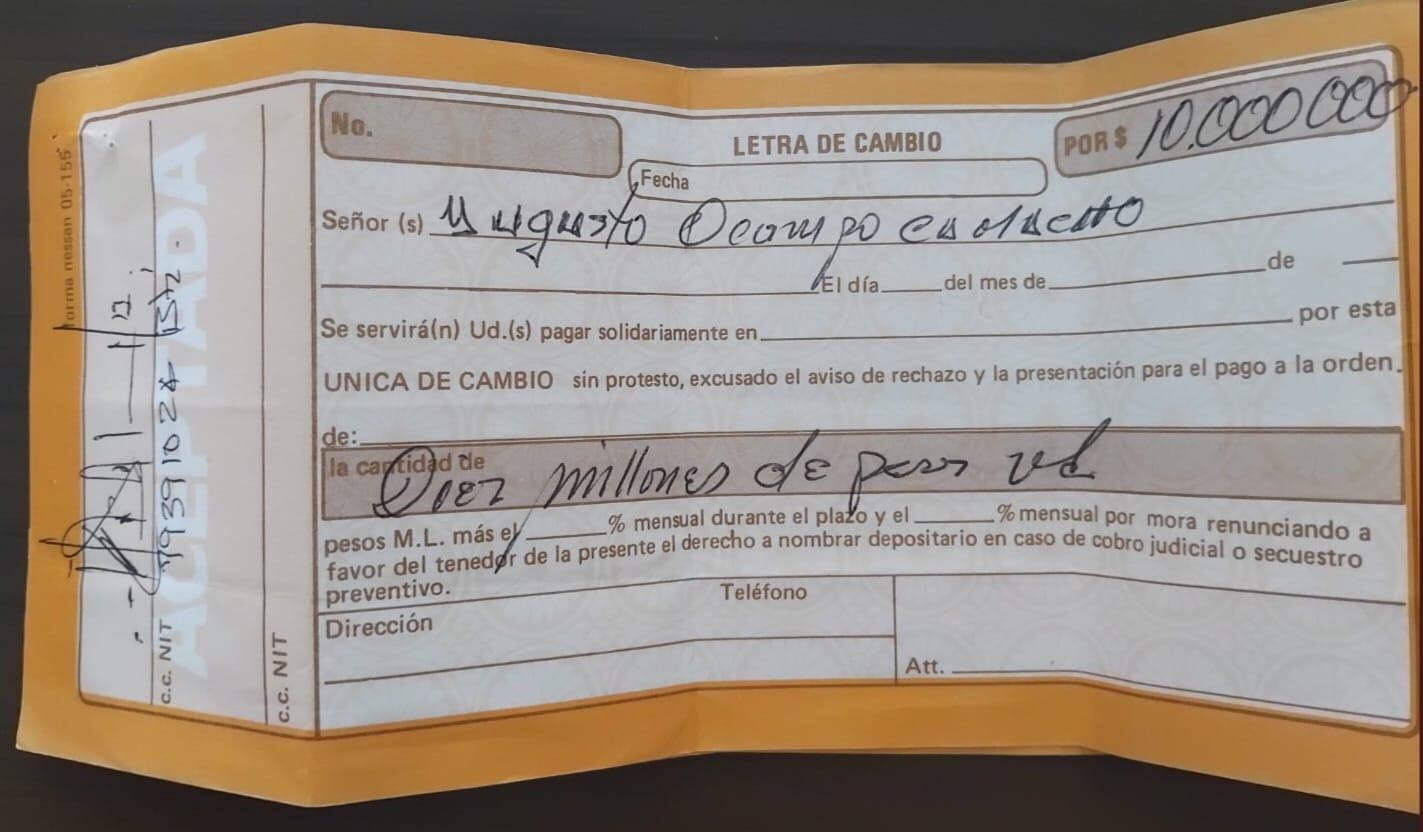 No.
LETRA DE CAMBIO
POR $ 10.000 000
Fecha
Señor (s) Augusto Ocampo
El día ____ del mes de ____ de ____
Se servirá(n) Ud.(s) pagar solidariamente en ____ por esta
UNICA DE CAMBIO sin protesto, excusado el aviso de rechazo y la presentación para el pago a la orden.
de:
la cantidad de Diez millones de pesos
pesos M.L. más el ____ % mensual durante el plazo y el ____ % mensual por mora renunciando a
favor del tenedor de la presente el derecho a nombrar depositario en caso de cobro judicial o secuestro
preventivo.
Dirección
Teléfono
Att.
forma nessan 05-155
c.c. NIT
ACEPTADA
c.c. NIT